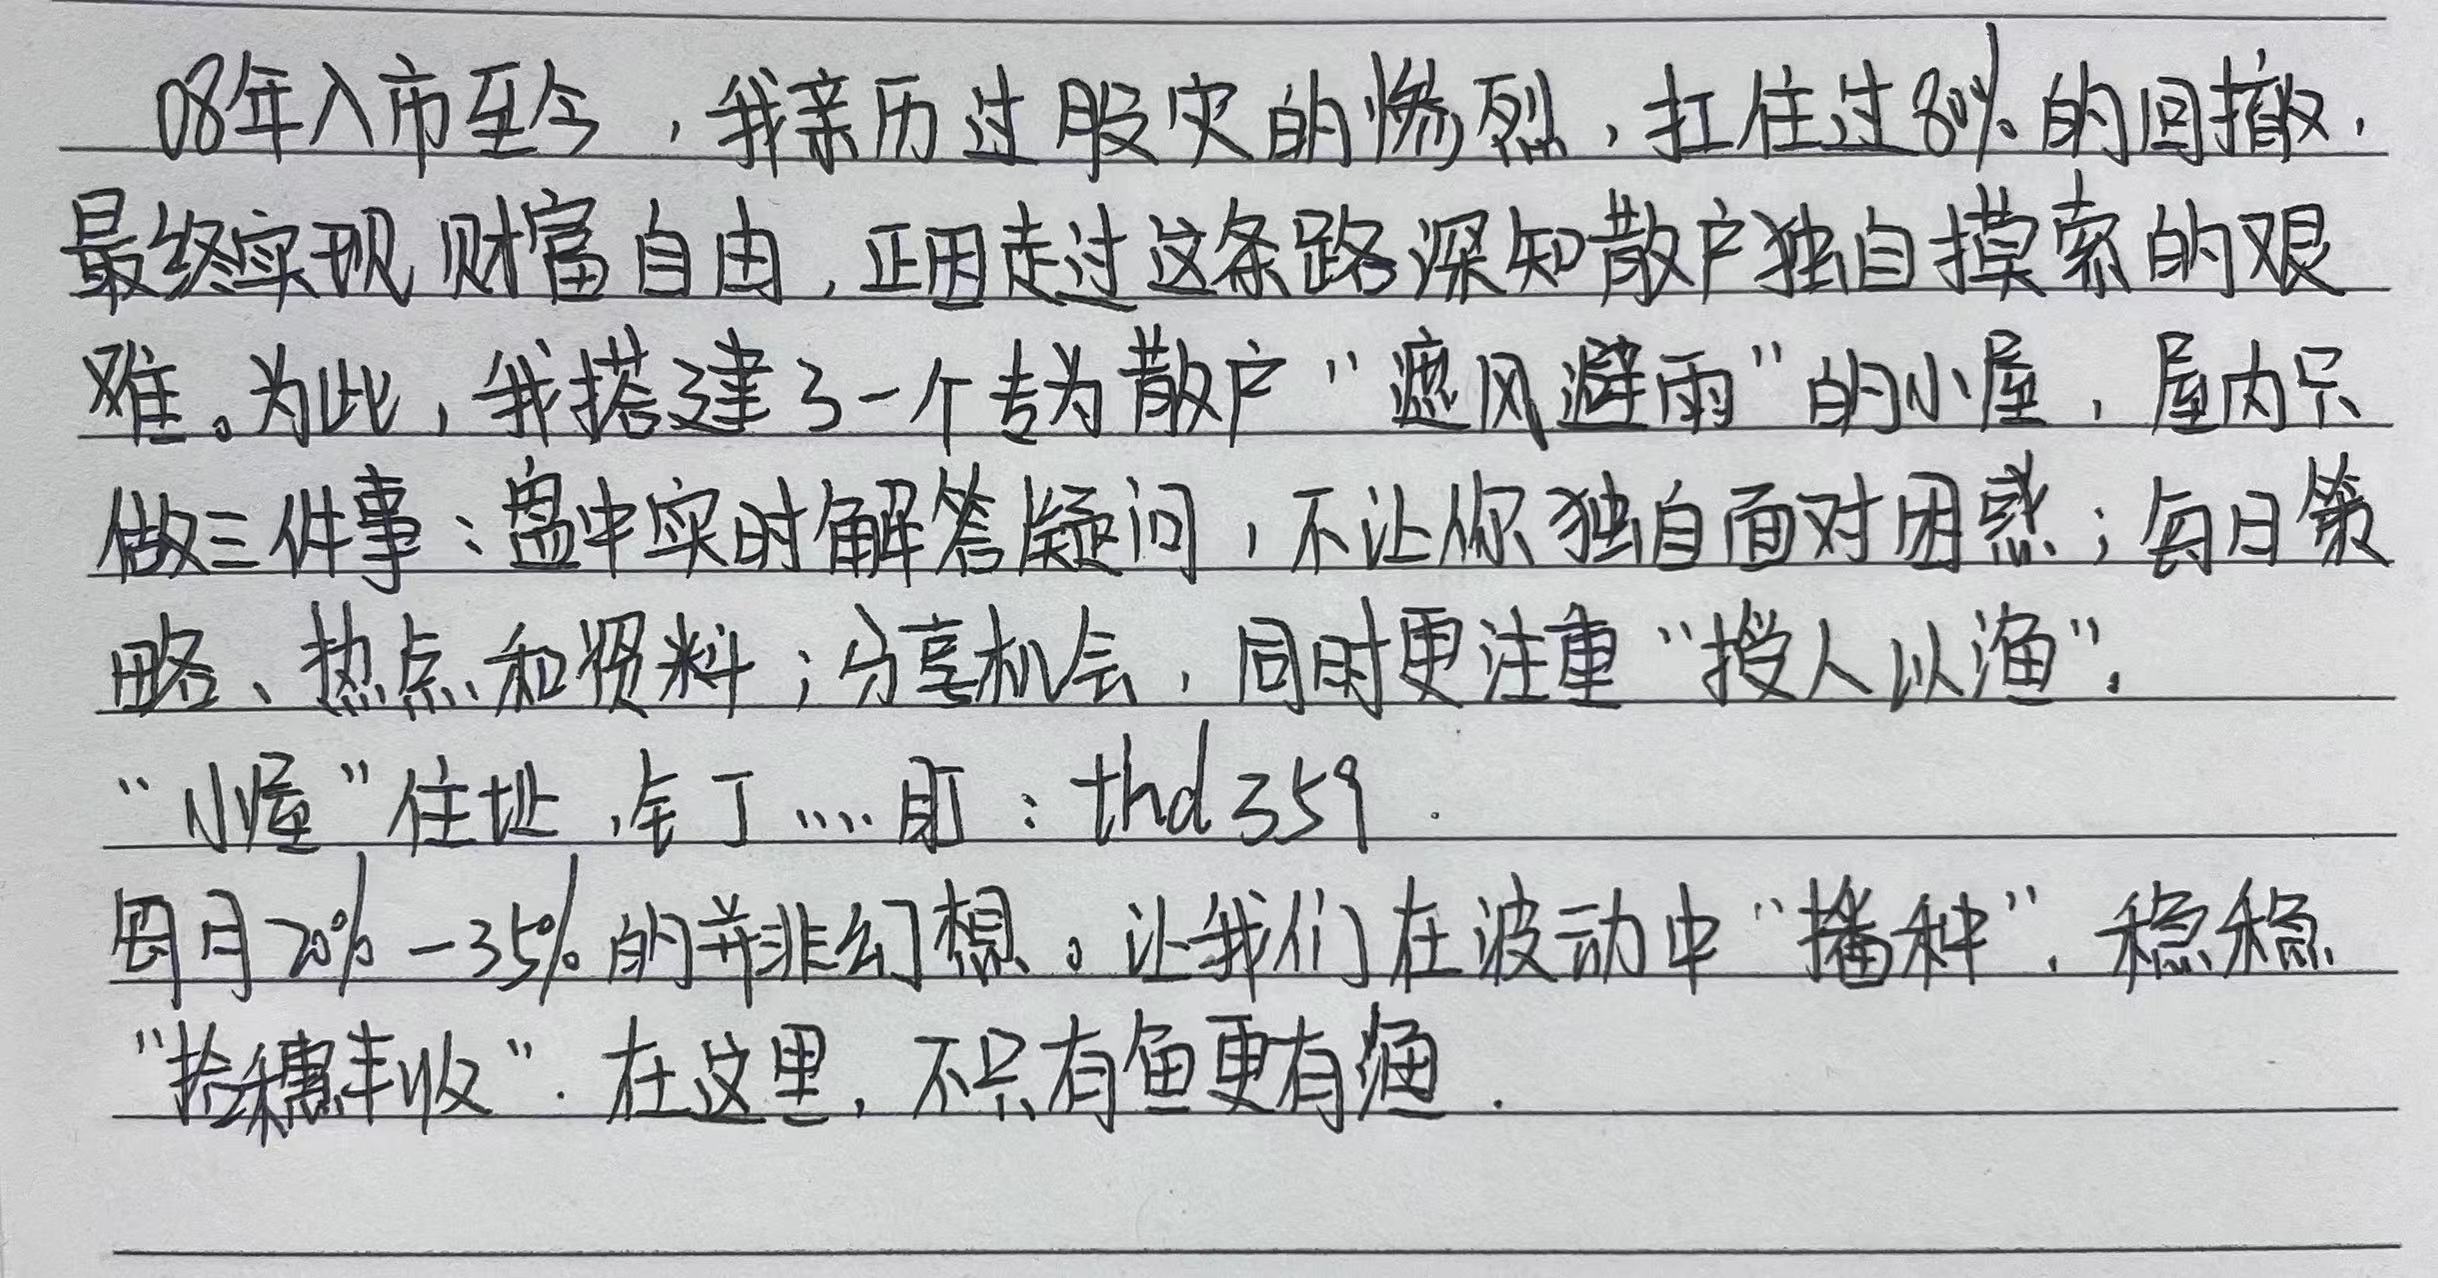 08年入市至今，我亲历过股灾的惨烈，扛住过80%的回撤，
最终实现财富自由，正因走过这条路深知散户独自摸索的艰
难。为此，我搭建了一个专为散户“遮风避雨”的小屋，屋内只
做三件事：盘中实时解答疑问，不让你独自面对困惑；每日策
略、热点和资料；分享机会，同时更注重“授人以渔”.
“小屋”住址，钅丁……盯：thd359.
每月20%-35%的并非幻想。让我们在波动中“播种”，稳稳
“拾穗丰收”.在这里，不只有鱼更有渔.